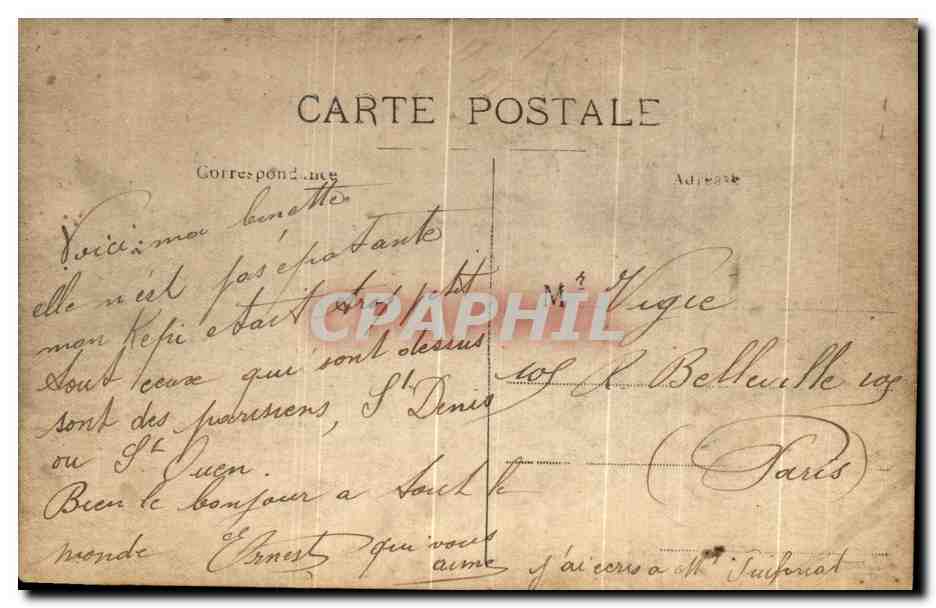 CARTE POSTALE
Correspondance
Adresse
Voici ma binette
elle n'est pas épatante
mon Kepi etait trop ptit
tout ceux qui sont dessus
sont des parisiens, St Denis
ou St Ouen.
Bien le bonjour a tout le
monde Ernest qui vous
aime
j'ai ecris a Mr
Mr Vigie
105 R Belleville 105
(Paris)
CPAPHIL